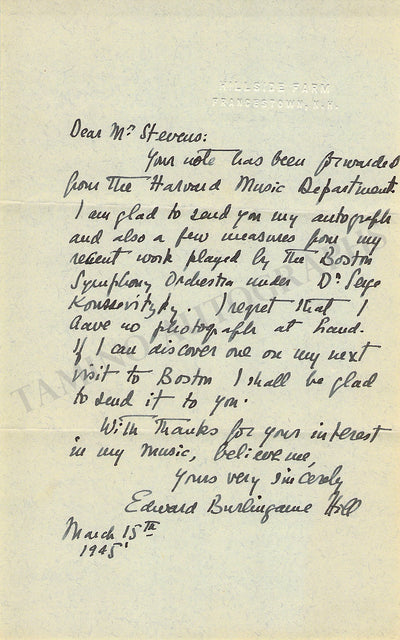 HILLSIDE FARM
FRANCESTOWN, N.H.
Dear Mr Stevens:
Your note has been forwarded
from The Harvard Music Department.
I am glad to send you my autograph
and also a few measures from my
recent work played by the Boston
Symphony Orchestra under Dr Serge
Koussevitzky. I regret that I
have no photograph at hand.
If I can discover one on my next
visit to Boston I shall be glad
to send it to you.
With Thanks for your interest
in my music, believe me,
Yours very sincerely
Edward Burlingame Hill
March 15th
1945
TAMINO AUTOGRAPHS